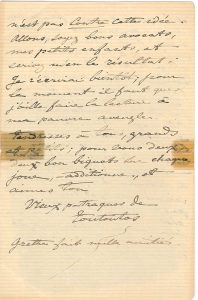 n'est pas contre cette idée.
Allons, soyez bons avocats,
mes petits enfants, et
écrivez m'en le résultat.
Je t'écrirai bientôt; pour
le moment il faut que
j'aille faire la lecture à
ma pauvre aveugle.
Tendresses à tous, grands
et petits; pour vous deux
deux bons béquots sur chaque
joue, additionnés, et
aimes ton
Vieux patraques de
Toutoutos
Gretry fait mille amitiés